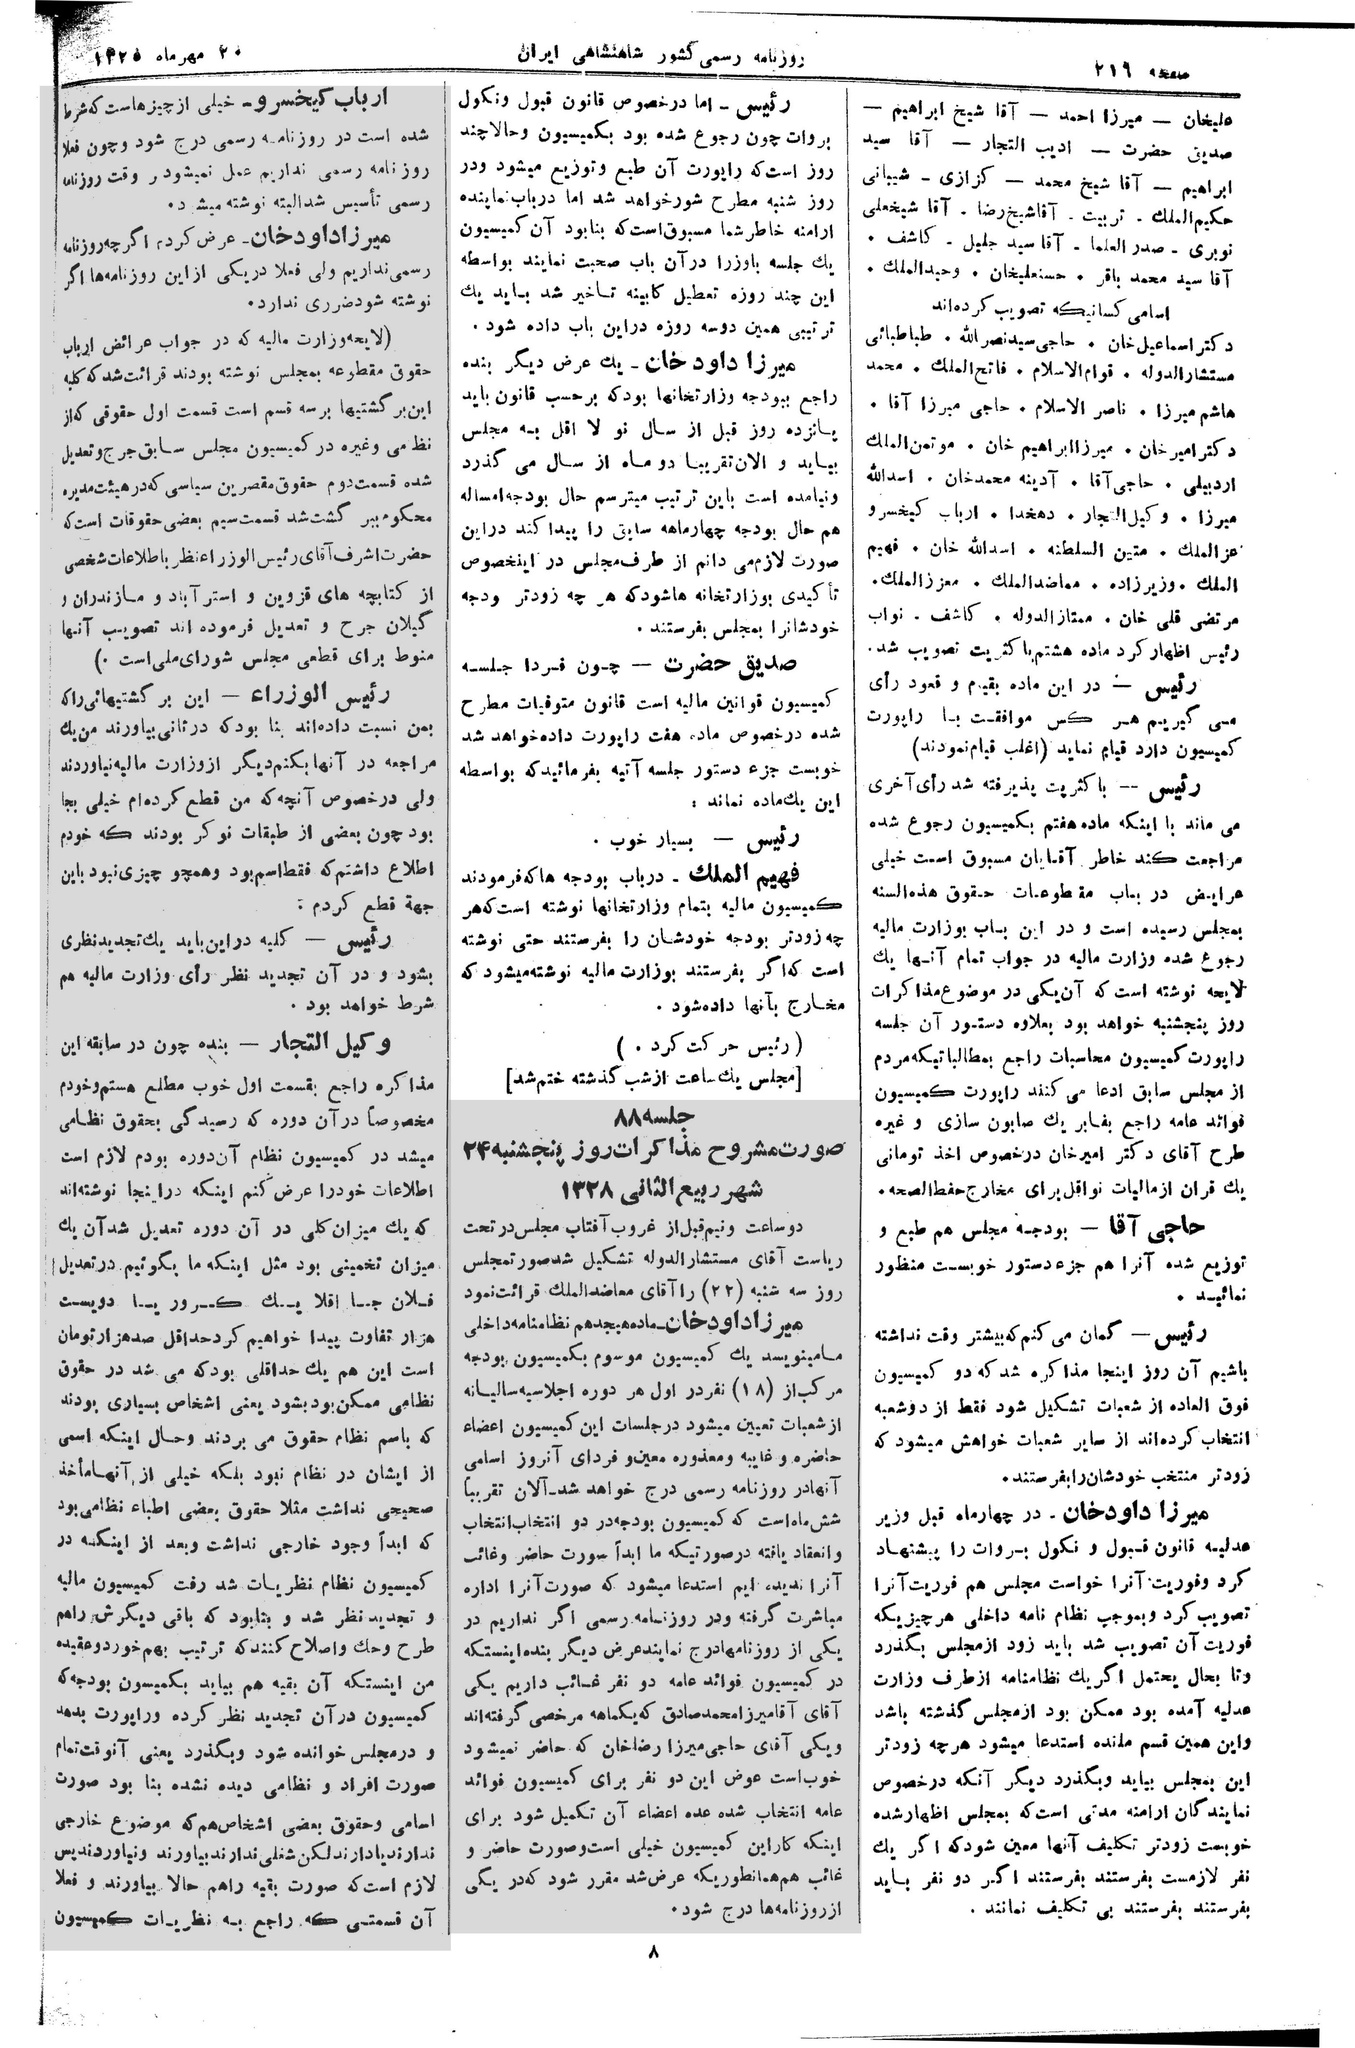 صفحه ۲۱۶
روزنامه رسمی کشور شاهنشاهی ایران
۲۰ مهرماه ۱۳۲۵
علیخان — میرزا احمد — آقا شیخ ابراهیم —
صدیق حضرت — ادیب التجار — آقا سید
ابراهیم — آقا شیخ محمد — کزازی - شیبانی
حکیم‌الملك - تربیت - آقاشیخ‌رضا - آقا شیخعلی
نوبری - صدر العلما - آقا سید جلیل - کاشف .
آقا سید محمد باقر . حسنعلیخان . وحیدالملك .
اسامی کسانیکه تصویب کرده‌اند
دکتر اسماعیل خان . حاجی سید نصرالله . طباطبائی
مستشارالدوله . قوام‌الاسلام . فاتح‌الملك . محمد
هاشم میرزا . ناصر الاسلام . حاجی میرزا آقا .
دکتر امیرخان . میرزا ابراهیم خان . موتمن‌الملك
اردبیلی . حاجی آقا . آدینه محمدخان . اسدالله
میرزا . وکیل‌التجار . دهخدا . ارباب کیخسرو
عزالملك . متین السلطنه . اسدالله خان . فهیم
الملك . وزیرزاده . معاضدالملك . معززالملك.
مرتضی قلی خان . ممتازالدوله . کاشف . نواب
رئیس اظهار کرد ماده هشتم باکثریت تصویب شد.
رئیس — در این ماده بقیام و قعود رأی
می گیریم هر کس موافقت با راپورت
کمیسیون دارد قیام نماید (اغلب قیام نمودند)
رئیس -- باکثریت پذیرفته شد رأی آخری
می ماند با اینکه ماده هفتم بکمیسیون رجوع شده
مراجعت کند خاطر آقایان مسبوق است خیلی
عرایض در باب مقطوعات حقوق هذه‌السنه
بمجلس رسیده است و در این باب بوزارت مالیه
رجوع شده وزارت مالیه در جواب تمام آنها یك
لایحه نوشته است که آن یکی در موضوع مذاکرات
روز پنجشنبه خواهد بود بعلاوه دستور آن جلسه
راپورت کمیسیون محاسبات راجع بمطالباتیکه مردم
از مجلس سابق ادعا می کنند راپورت کمیسیون
فوائد عامه راجع بفابریك صابون سازی و غیره
طرح آقای دکتر امیرخان درخصوص اخذ تومانی
یك قران از مالیات نواقل برای مخارج حفظ‌الصحه.
حاجی آقا — بودجه مجلس هم طبع و
توزیع شده آنرا هم جزء دستور خوبست منظور
نمائید .
رئیس — گمان می کنم که بیشتر وقت نداشته
باشیم آن روز اینجا مذاکره شد که دو کمیسیون
فوق العاده از شعبات تشکیل شود فقط از دو شعبه
انتخاب کرده‌اند از سایر شعبات خواهش میشود که
زودتر منتخب خودشان را بفرستند.
میرزا داودخان - در چهارماه قبل وزیر
عدلیه قانون قبول و نکول بروات را پیشنهاد
کرد وفوریت آنرا خواست مجلس هم فوریت آنرا
تصویب کرد وبموجب نظام نامه داخلی هرچیزیکه
فوریت آن تصویب شد باید زود از مجلس بگذرد
وتا بحال یحتمل اگر یك نظامنامه از طرف وزارت
عدلیه آمده بود ممکن بود از مجلس گذشته باشد
واین همین قسم مانده استدعا میشود هرچه زودتر
این بمجلس بیاید وبگذرد دیگر آنکه درخصوص
نمایندگان ارامنه مدتی است که بمجلس اظهارشده
خوبست زودتر تکلیف آنها معین شود که اگر یك
نفر لازمست بفرستند بفرستند اگر دو نفر باید
بفرستند بفرستند بی تکلیف نمانند .
رئیس - اما درخصوص قانون قبول ونکول
بروات چون رجوع شده بود بکمیسیون وحالا چند
روز است که راپورت آن طبع وتوزیع میشود ودر
روز شنبه مطرح شور خواهد شد اما درباب نماینده
ارامنه خاطر شما مسبوق است که بنا بود آن کمیسیون
یك جلسه باوزرا در آن باب صحبت نمایند بواسطه
این چند روزه تعطیل کابینه تأخیر شد باید یك
ترتیبی همین دوسه روزه دراین باب داده شود .
میرزا داود خان - یك عرض دیگر بنده
راجع ببودجه وزارتخانها بود که برحسب قانون باید
پانزده روز قبل از سال نو لا اقل به مجلس
بیاید و الان تقریبا دو ماه از سال می گذرد
ونیامده است باین ترتیب میترسم حال بودجه امساله
هم حال بودجه چهارماهه سابق را پیدا کند دراین
صورت لازم می دانم از طرف مجلس در اینخصوص
تأکیدی بوزارتخانه ها شود که هر چه زودتر ودجه
خودشانرا بمجلس بفرستند .
صدیق حضرت — چون فردا جلسه
کمیسیون قوانین مالیه است قانون متوفیات مطرح
شده درخصوص ماده هفت راپورت داده خواهد شد
خوبست جزء دستور جلسه آتیه بفرمائید که بواسطه
این یك ماده نماند :
رئیس — بسیار خوب .
فهیم الملك - درباب بودجه ها که فرمودند
کمیسیون مالیه بتمام وزارتخانها نوشته است که هر
چه زودتر بودجه خودشان را بفرستند حتی نوشته
است که اگر بفرستند بوزارت مالیه نوشته میشود که
مخارج بآنها داده شود.
( رئیس حرکت کرد . )
[مجلس یك ساعت از شب گذشته ختم شد]
جلسه ۸۸
صورت مشروح مذاکرات روز پنجشنبه ۲۴
شهر ربیع الثانی ۱۳۲۸
دو ساعت ونیم قبل از غروب آفتاب مجلس در تحت
ریاست آقای مستشارالدوله تشکیل شد صورتمجلس
روز سه شنبه (۲۲) را آقای معاضدالملك قرائت نمود
میرزا داودخان - ماده هیجدهم نظامنامه داخلی
مامینویسد یك کمیسیون موسوم بکمیسیون بودجه
مرکب از (۱۸) نفر در اول هر دوره اجلاسیه سالیانه
از شعبات تعیین میشود در جلسات این کمیسیون اعضاء
حاضره و غایبه ومعذوره معین و فردای آنروز اسامی
آنهادر روزنامه رسمی درج خواهد شد - الان تقریباً
شش ماه است که کمیسیون بودجه در دو انتخاب انتخاب
وانعقاد یافته درصورتیکه ما ابداً صورت حاضر وغائب
آنرا ندیده ایم استدعا میشود که صورت آنرا اداره
مباشرت گرفته ودر روزنامه رسمی اگر نداریم در
یکی از روزنامها درج نمایند عرض دیگر بنده اینستکه
در کمیسیون فوائد عامه دو نفر غائب داریم یکی
آقای آقامیرزا محمدصادق که یکماهه مرخصی گرفته‌اند
ویکی آقای حاجی میرزا رضاخان که حاضر نمیشود
خوب است عوض این دو نفر برای کمیسیون فوائد
عامه انتخاب شده عده اعضاء آن تکمیل شود برای
اینکه کار این کمیسیون خیلی است وصورت حاضر و
غائب هم همانطوریکه عرض شد مقرر شود که در یکی
از روزنامه‌ها درج شود .
۸
ارباب کیخسرو - خیلی از چیزهاست که شرط
شده است در روزنامه رسمی درج شود و چون فعلا
روزنامه رسمی نداریم عمل نمیشود هر وقت روزنامه
رسمی تأسیس شد البته نوشته میشود .
میرزا داودخان - عرض کردم اگر چه روزنامه
رسمی نداریم ولی فعلا دریکی از این روزنامه ها اگر
نوشته شود ضرری ندارد .
(لایحه وزارت مالیه که در جواب عرائض ارباب
حقوق مقطوعه بمجلس نوشته بودند قرائت شد که کلیه
این بر گشتیها بر سه قسم است قسمت اول حقوقی که از
نظامی وغیره در کمیسیون مجلس سابق جرح و تعدیل
شده قسمت دوم حقوق مقصرین سیاسی که در هیئت مدیره
محکوم ببر گشت شد قسمت سیم بعضی حقوقات است که
حضرت اشرف آقای رئیس الوزراء نظر باطلاعات شخصی
از کتابچه های قزوین و استرآباد و مازندران و
گیلان جرح و تعدیل فرموده اند تصویب آنها
منوط برای قطعی مجلس شورای ملی است .)
رئیس الوزراء — این بر گشتیهائی را که
بمن نسبت داده‌اند بنا بود که درثانی بیاورند من یك
مراجعه در آنها بکنم دیگر از وزارت مالیه نیاوردند
ولی درخصوص آنچه که من قطع کرده‌ام خیلی بجا
بود چون بعضی از طبقات نوکر بودند که خودم
اطلاع داشتم که فقط اسم بود وهمچو چیزی نبود باین
جهة قطع کردم :
رئیس — کلیه در این باید یك تجدید نظری
بشود و در آن تجدید نظر رأی وزارت مالیه هم
شرط خواهد بود .
وکیل التجار — بنده چون در سابقه این
مذاکره راجع بقسمت اول خوب مطلع هستم وخودم
مخصوصاً در آن دوره که رسیدگی بحقوق نظامی
میشد در کمیسیون نظام آن دوره بودم لازم است
اطلاعات خود را عرض کنم اینکه در اینجا نوشته‌اند
که یك میزان کلی در آن دوره تعدیل شد آن یك
میزان تخمینی بود مثل اینکه ما بگوئیم در تعدیل
فلان جا اقلا یك کرور یا دویست
هزار تفاوت پیدا خواهیم کرد حداقل صد هزار تومان
است این هم یك حداقلی بود که می شد در حقوق
نظامی ممکن بود بشود یعنی اشخاص بسیاری بودند
که باسم نظام حقوق می بردند وحال اینکه اسمی
از ایشان در نظام نبود بلکه خیلی از آنها مأخذ
صحیحی نداشت مثلا حقوق بعضی اطباء نظامی بود
که ابداً وجود خارجی نداشت وبعد از اینکه در
کمیسیون نظام نظریات شد رفت کمیسیون مالیه
و تجدید نظر شد و بنا بود که باقی دیگرش راهم
طرح وحك واصلاح کنند که ترتیب بهم خورد وعقیده
من اینستکه آن بقیه هم بیاید بکمیسون بودجه که
کمیسیون درآن تجدید نظر کرده وراپورت بدهد
و در مجلس خوانده شود وبگذرد یعنی آنوقت تمام
صورت افراد و نظامی دیده نشده بنا بود صورت
اسامی وحقوق بعضی اشخاص هم که موضوع خارجی
ندارند یا دارند لکن شغلی ندارند بیاورند ونیاوردند پس
لازم است که صورت بقیه راهم حالا بیاورند و فعلا
آن قسمتی که راجع به نظریات کمیسیون